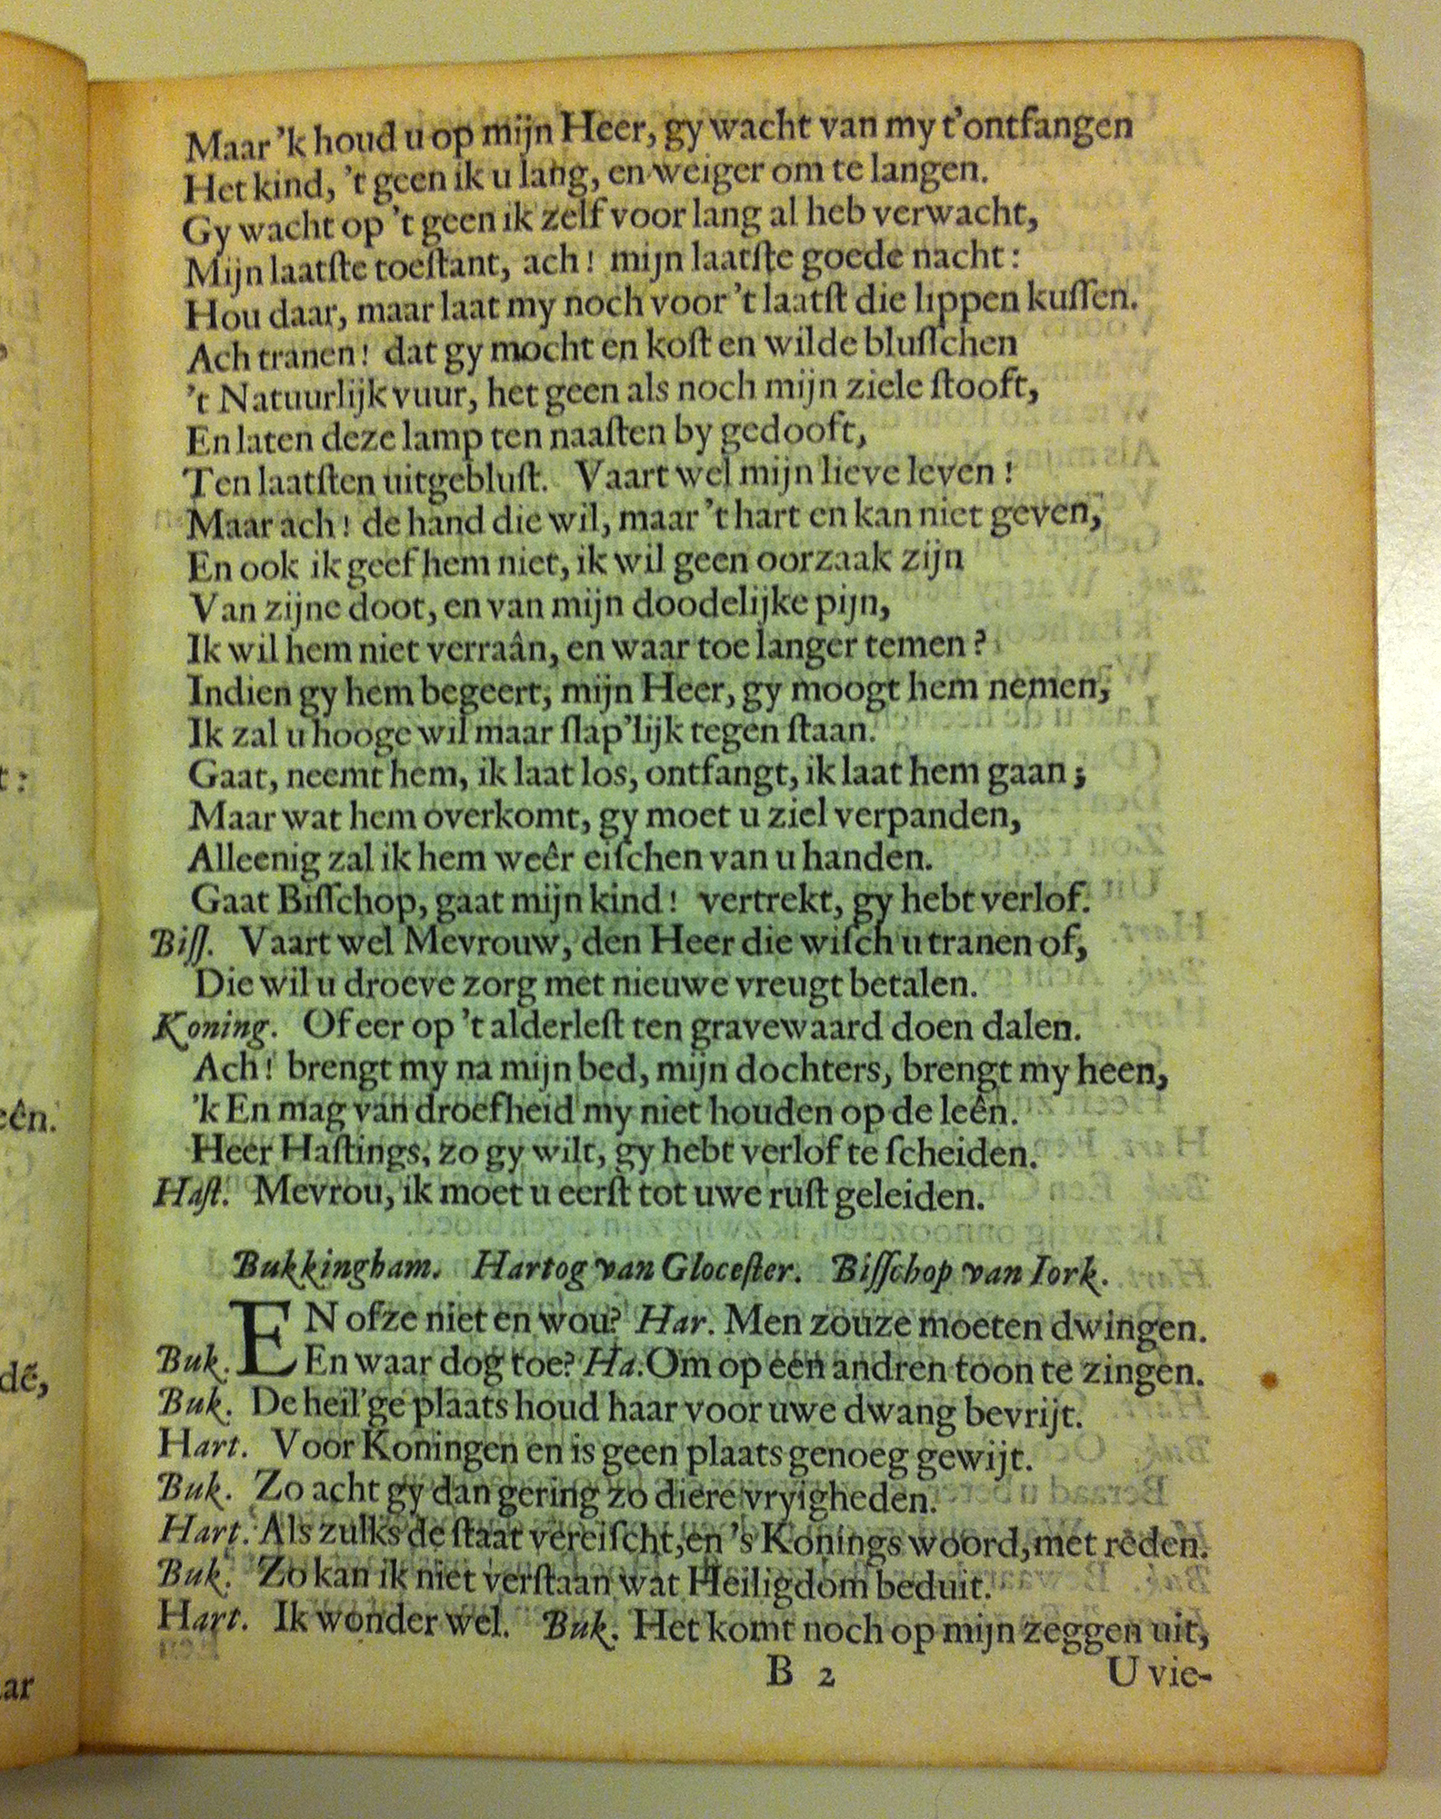 Maar 'k houd u op mijn Heer, gy wacht van my t'ontfangen
Het kind, 't geen ik u lang, en weiger om te langen.
Gy wacht op 't geen ik zelf voor lang al heb verwacht,
Mijn laatſte toeſtant, ach! mijn laatſte goede nacht:
Hou daar, maar laat my noch voor 't laatſt die lippen kuſſen.
Ach tranen! dat gy mocht en koſt en wilde bluſſchen
't Natuurlijk vuur, het geen als noch mijn ziele ſtooft,
En laten deze lamp ten naaſten by gedooft,
Ten laatſten uitgebluſt. Vaart wel mijn lieve leven!
Maar ach! de hand die wil, maar 't hart en kan niet geven,
En ook ik geef hem niet, ik wil geen oorzaak zijn
Van zijne doot, en van mijn doodelijke pijn,
Ik wil hem niet verraân, en waar toe langer temen?
Indien gy hem begeert, mijn Heer, gy moogt hem nemen,
Ik zal u hooge wil maar ſlap'lijk tegen ſtaan.
Gaat, neemt hem, ik laat los, ontfangt, ik laat hem gaan;
Maar wat hem overkomt, gy moet u ziel verpanden,
Alleenig zal ik hem weêr eiſchen van u handen.
Gaat Biſſchop, gaat mijn kind! vertrekt, gy hebt verlof.
Biſſ. Vaart wel Mevrouw, den Heer die wiſch u tranen of,
Die wil u droeve zorg met nieuwe vreugt betalen.
Koning. Of eer op 't alderleſt ten gravewaard doen dalen.
Ach! brengt my na mijn bed, mijn dochters, brengt my heen,
'k En mag van droefheid my niet houden op de leên.
Heer Haſtings, zo gy wilt, gy hebt verlof te ſcheiden.
Haſt. Mevrou, ik moet u eerſt tot uwe ruſt geleiden.
Bukkingham. Hartog van Gloceſter. Biſſchop van Iork.
EN ofze niet en wou? Har. Men zouze moeten dwingen.
Buk. En waar dog toe? Ha. Om op een andren toon te zingen.
Buk. De heil'ge plaats houd haar voor uwe dwang bevrijt.
Hart. Voor Koningen en is geen plaats genoeg gewijt.
Buk. Zo acht gy dan gering zo diere vryigheden.
Hart. Als zulks de ſtaat vereiſcht, en 's Konings woord, met reden.
Buk. Zo kan ik niet verſtaan wat Heiligdom beduit.
Hart. Ik wonder wel. Buk. Het komt noch op mijn zeggen uit,
B 2 U vie-